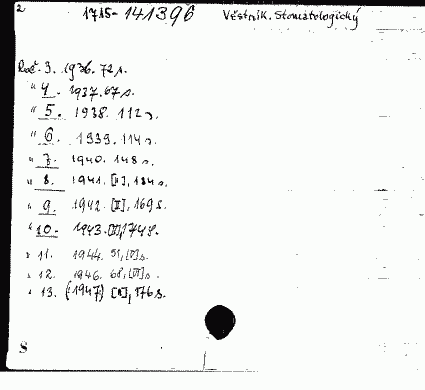 2 1715-141396 Věstník. Stomatologický
Roč. 3. 1936. 72 s.
" 4. 1937. 67 s.
" 5. 1938. 112 s.
" 6. 1939. 114 s.
" 7. 1940. 148 s.
" 8. 1941. [II], 184 s.
" 9. 1942. [II], 169 s.
" 10. 1943. [II], 174 s.
" 11. 1944. 51, [] s.
" 12. 1946. 68, [] s.
" 13. (1947) [II], 176 s.
S